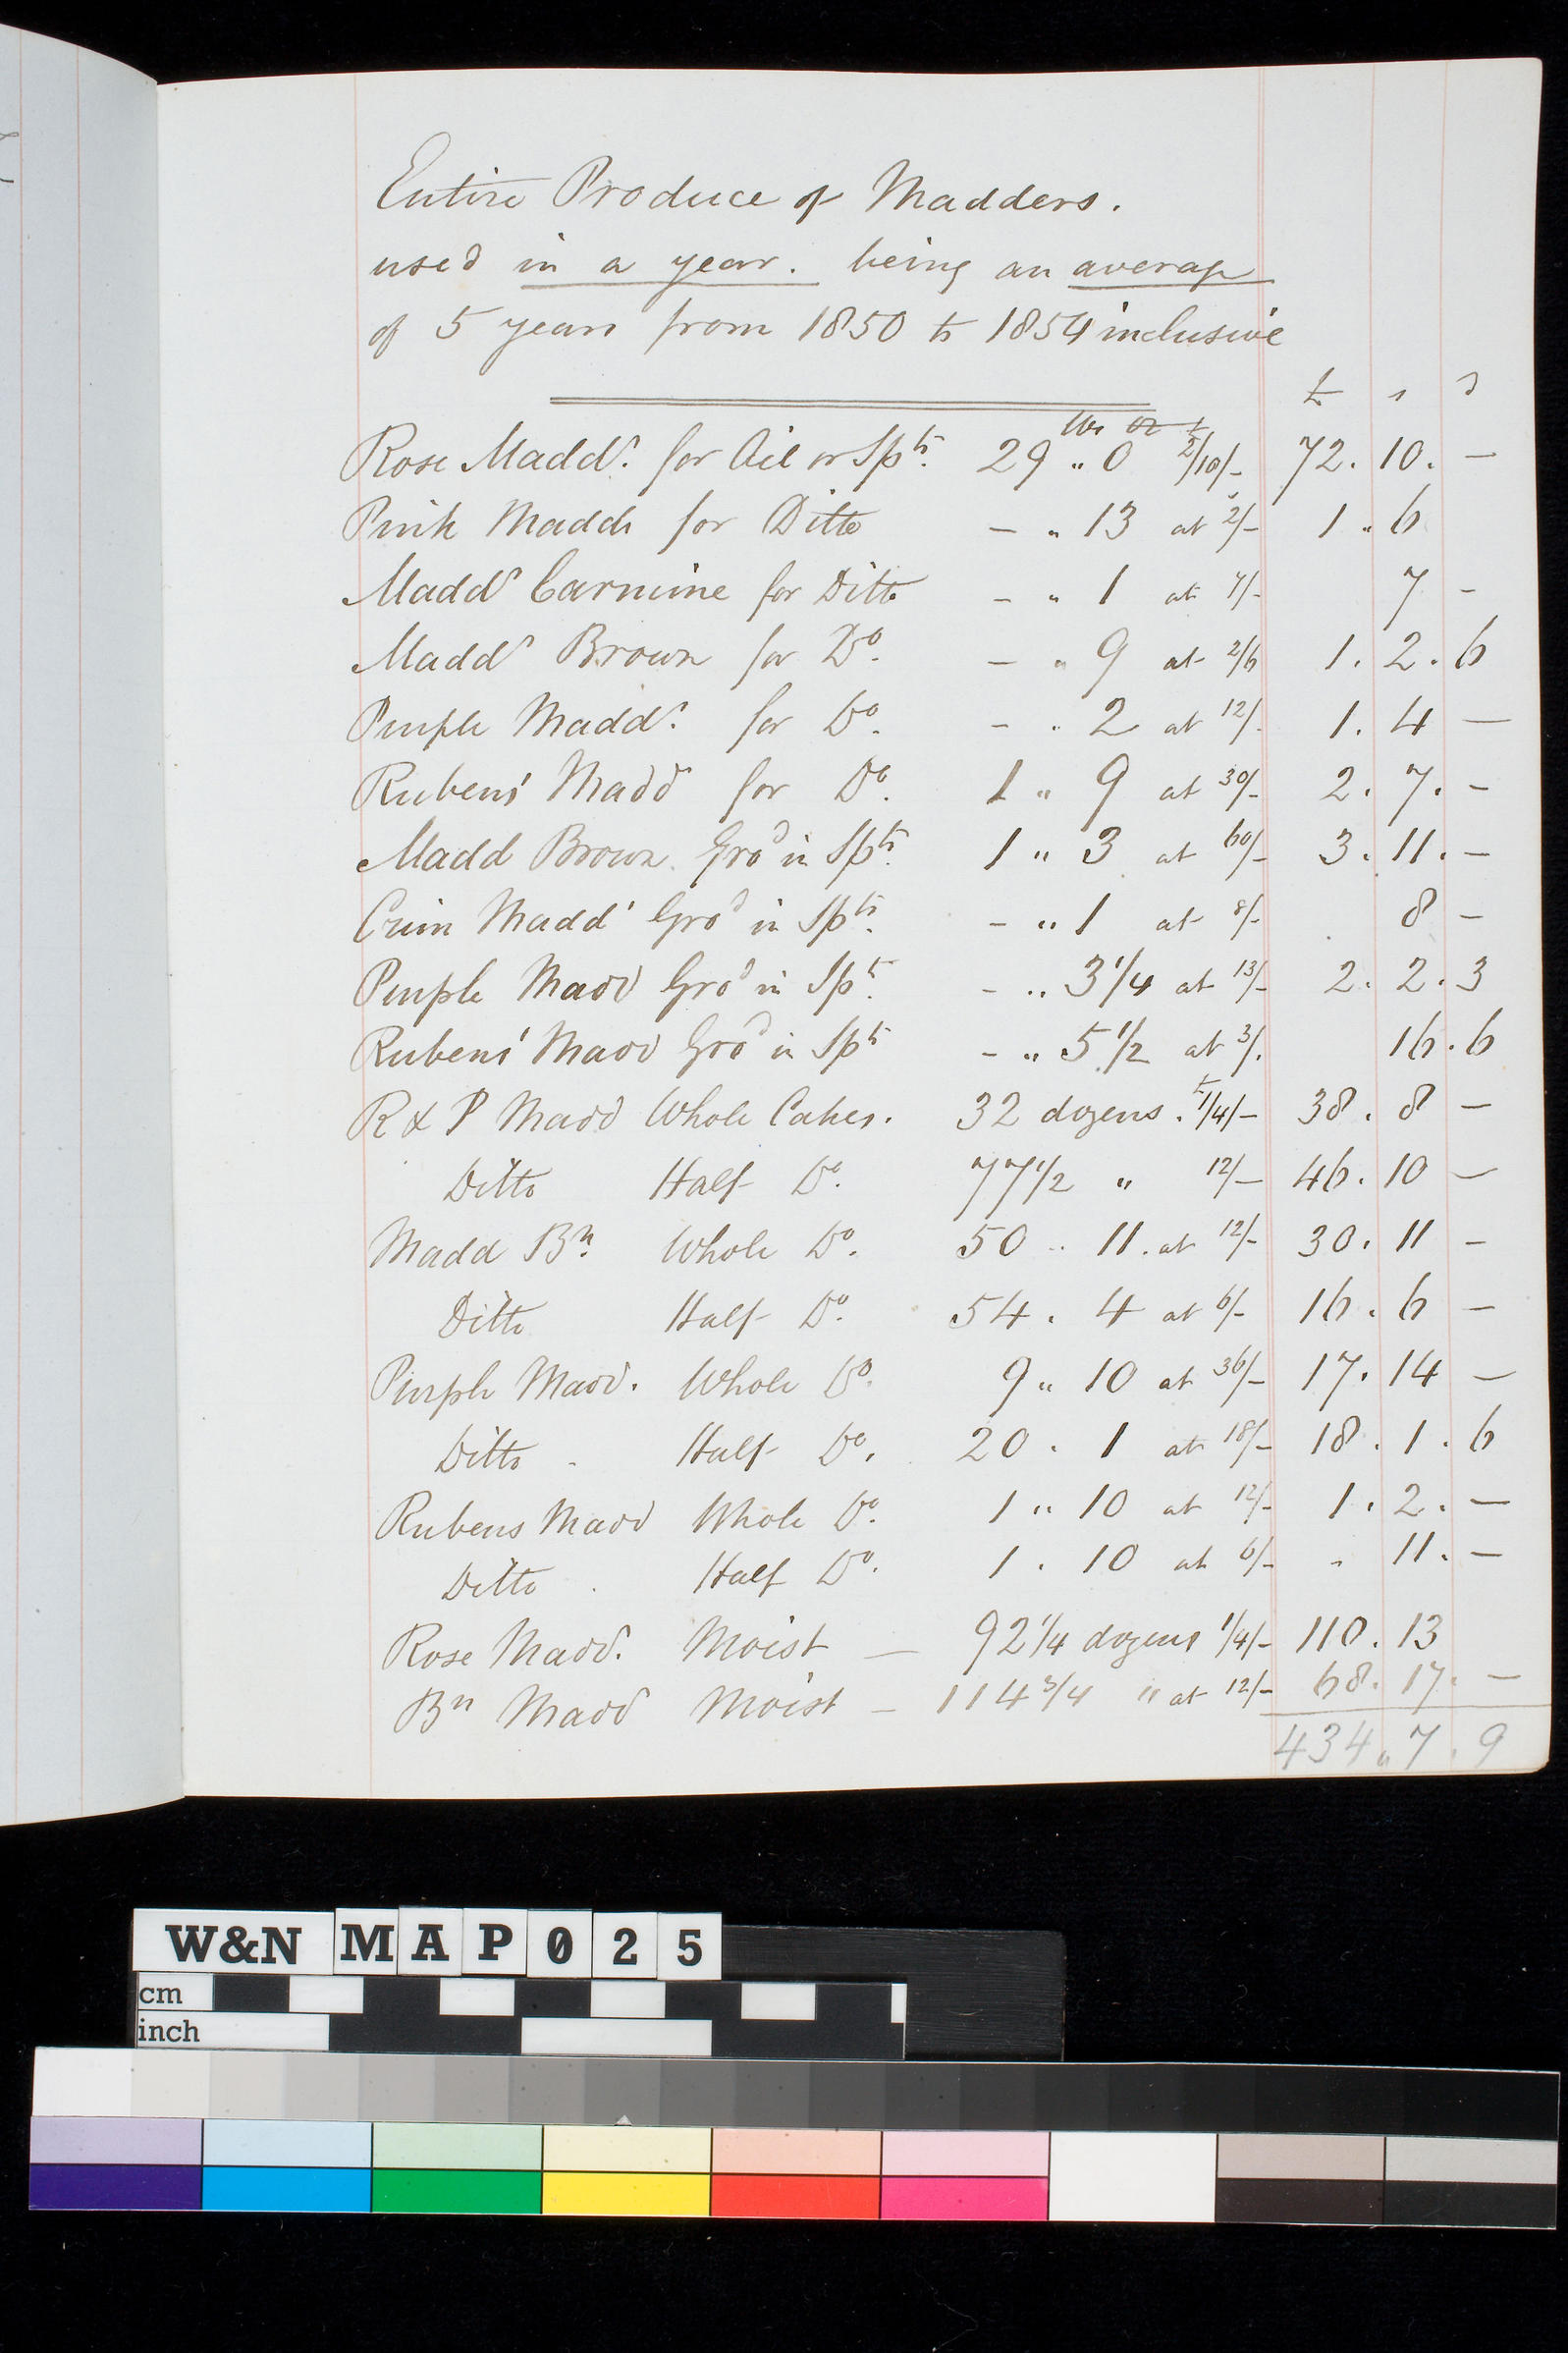 Entire Produce of Madders.
used in a year. being an average
of 5 years from 1850 to 1854 inclusive
£ s d
lbs oz £
Rose Maddr. for Oil or Spts. 29 " 0 2/10/- 72. 10. -
Pink Maddr for Ditto - " 13 at 2/- 1 " 6
Maddr Carmine for Ditto - " 1 at 7/- 7 -
Maddr Brown for Do. - " 9 at 2/6 1. 2. 6
Purple Maddr. for Do. - " 2 at 12/. 1. 4 -
Rubens' Madd for Do. 1 " 9 at 30/- 2. 7. -
Madd Brown Grd in Spts. 1 " 3 at 60/- 3. 11. -
Crim Madd' Grd in Spts. - " 1 at 8/- 8 -
Purple Madd Grd in Spts. - " 3 1/4 at 13/- 2. 2. 3
Rubens' Madd Grd in Spts - " 5 1/2 at 3/. 16. 6
R & P Madd Whole Cakes. 32 dozens. £1/4/- 38. 8 -
Ditto Half Do. 77 1/2 " 12/- 46. 10 -
Madd Bn. Whole Do. 50 " 11. at 12/- 30. 11 -
Ditto Half Do. 54. 4 at 6/- 16. 6 -
Purple Madd. Whole Do. 9 " 10 at 36/- 17. 14 -
Ditto - Half Do. 20. 1 at 18/- 18. 1. 6
Rubens Madd Whole Do. 1 " 10 at 12/- 1. 2. -
Ditto. Half Do. 1. 10 at 6/- - 11. -
Rose Madd. Moist - 92 1/4 dozens 1/4/- 110. 13
Bn Madd Moist - 114 3/4 " at 12/- 68. 17. -
434 " 7. 9
W&N MAP025
cm
inch